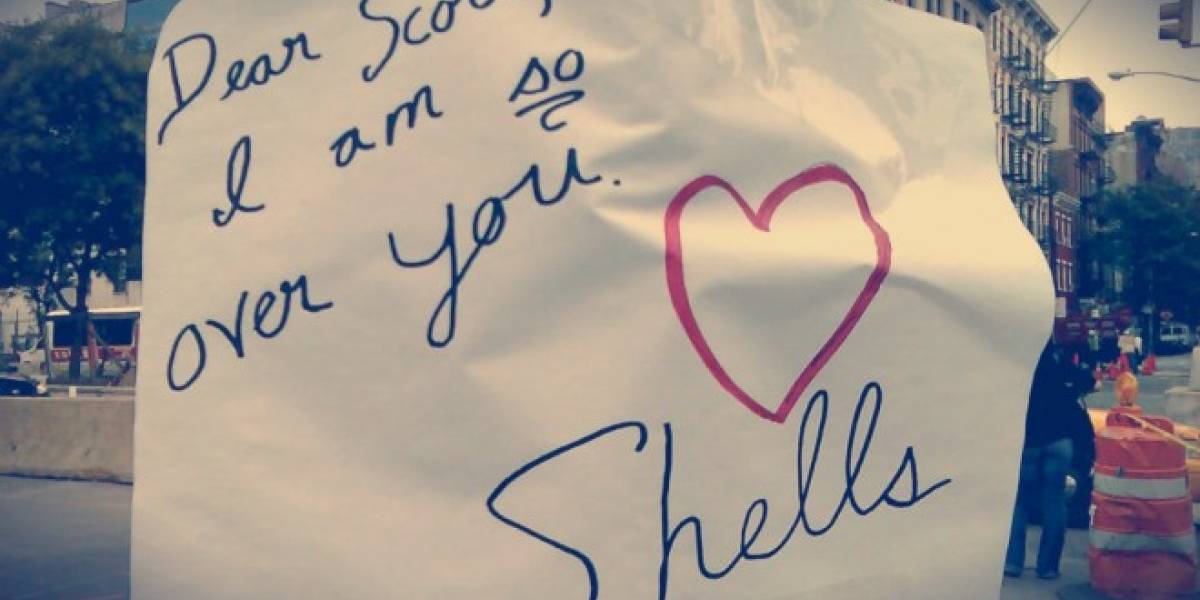 Dear
I am so
over you.
Shells